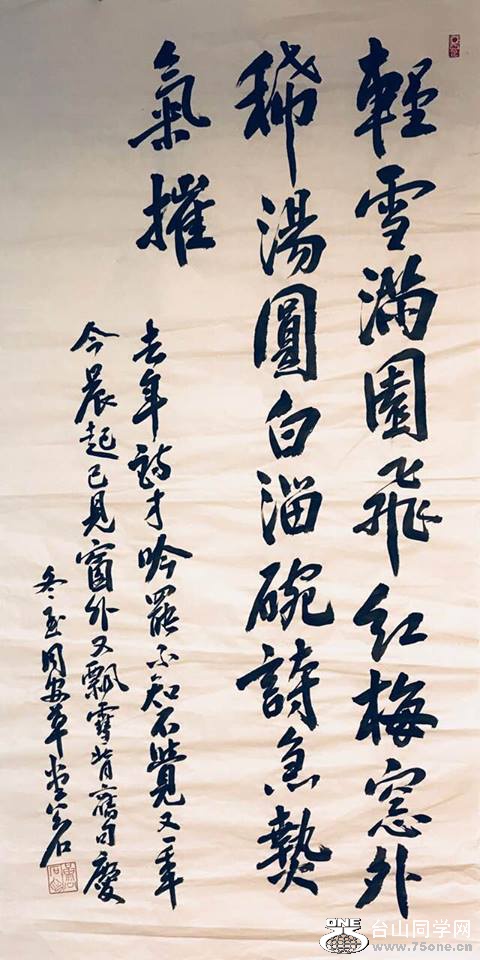 輕雪滿園飛紅梅窓外
稀湯圓白溜碗詩急熱
氣摧
去年詩才吟罷不知不覺又一年
今晨起已見窗外又飄雪皆舊句
冬至草堂
ONE
台山同学网
www.75one.cn